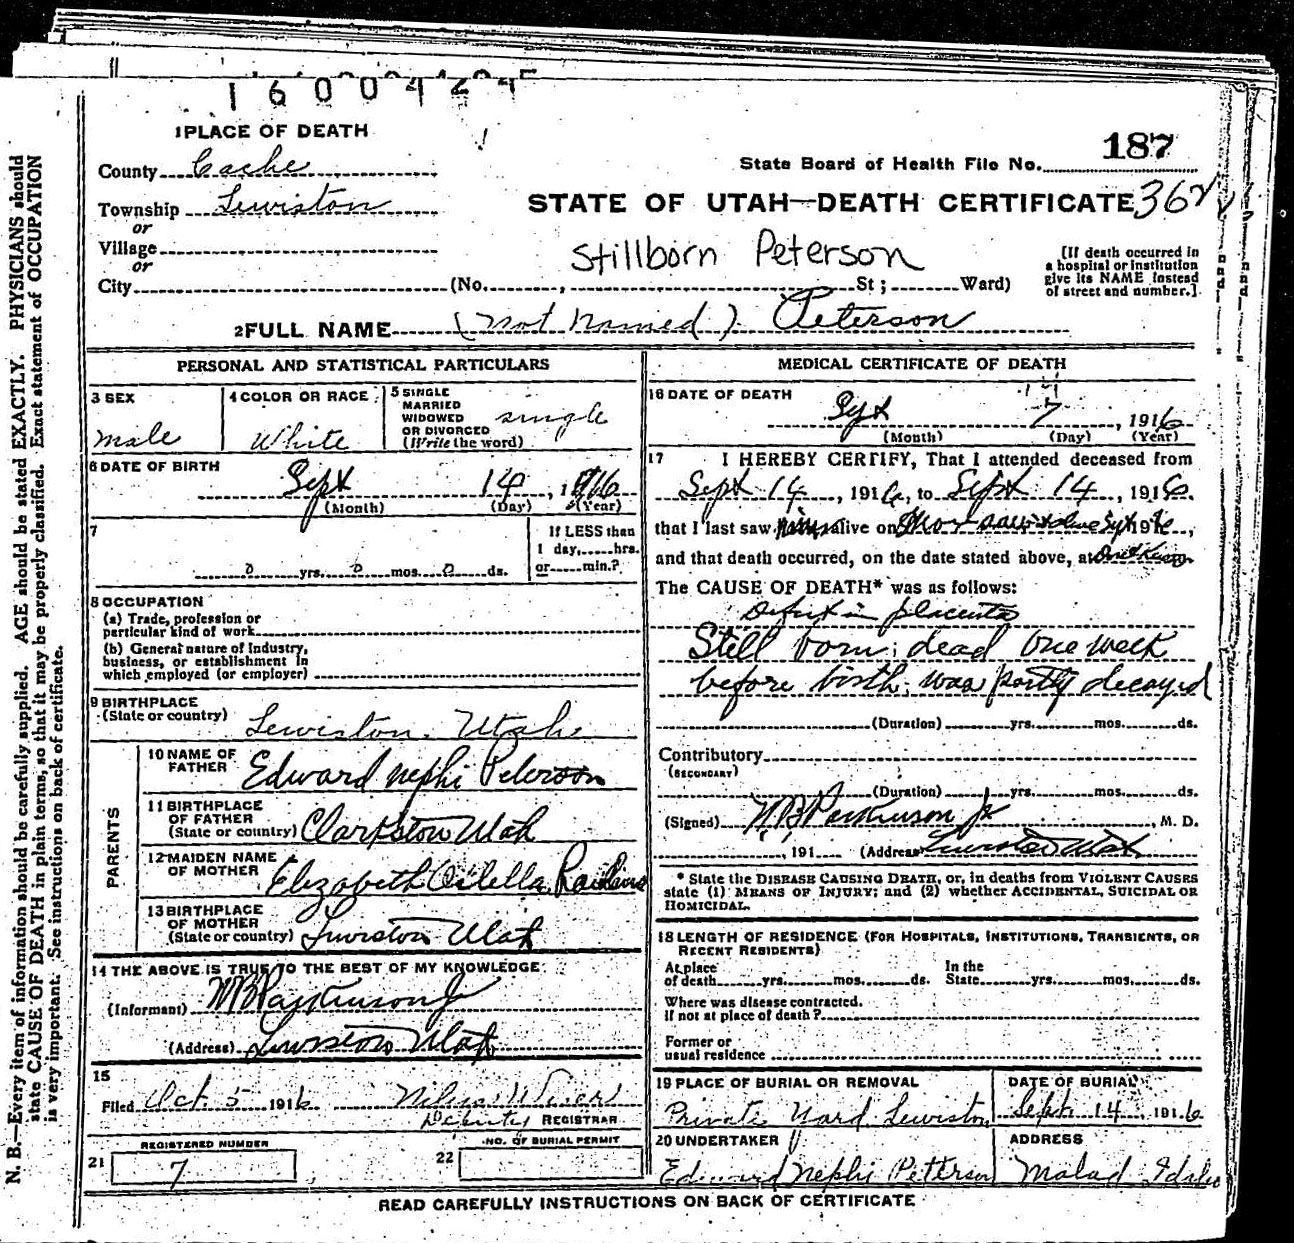 1PLACE OF DEATH
187
State Board of Health File No.
County Cache
STATE OF UTAH—DEATH CERTIFICATE 362
Township Lewiston
or
Village
or
Stillborn Peterson
[If death occurred in
a hospital or institution
give its NAME instead
of street and number.]
City (No. , St ; Ward)
2FULL NAME (Not Named) Peterson
PERSONAL AND STATISTICAL PARTICULARS
3 SEX
male
4 COLOR OR RACE
White
5 SINGLE
MARRIED
WIDOWED
OR DIVORCED
(Write the word)
single
6 DATE OF BIRTH
Sept 14, 1916
(Month) (Day) (Year)
7
0 yrs. 0 mos. 0 ds.
If LESS than
1 day, hrs.
or min.?
8 OCCUPATION
(a) Trade, profession or
particular kind of work
(b) General nature of Industry,
business, or establishment in
which employed (or employer)
9 BIRTHPLACE
(State or country) Lewiston. Utah
PARENTS
10 NAME OF
FATHER Edward Nephi Peterson
11 BIRTHPLACE
OF FATHER
(State or country) Clarkston Utah
12 MAIDEN NAME
OF MOTHER Elizabeth
13 BIRTHPLACE
OF MOTHER
(State or country) Lewiston Utah
14 THE ABOVE IS TRUE TO THE BEST OF MY KNOWLEDGE
(Informant) W B Parkinson Jr
(Address) Lewiston Utah
15
Filed Oct. 5 1916
Deputy REGISTRAR
REGISTERED NUMBER
21 7
NO. OF BURIAL PERMIT
22
MEDICAL CERTIFICATE OF DEATH
16 DATE OF DEATH
14
Sept 7, 1916
(Month) (Day) (Year)
17 I HEREBY CERTIFY, That I attended deceased from
Sept 14, 1916, to Sept 14, 1916.
that I last saw him alive on 191
and that death occurred, on the date stated above, at
The CAUSE OF DEATH* was as follows:
Defect in placenta
Still born; dead one week
before birth; was partly decayed
(Duration) yrs. mos. ds.
Contributory
(SECONDARY)
(Duration) yrs. mos. ds.
(Signed) W B Parkinson Jr, M. D.
, 191 (Address) Lewiston Utah
* State the DISEASE CAUSING DEATH, or, in deaths from VIOLENT CAUSES
state (1) MEANS OF INJURY; and (2) whether ACCIDENTAL, SUICIDAL OR
HOMICIDAL.
18 LENGTH OF RESIDENCE (FOR HOSPITALS, INSTITUTIONS, TRANSIENTS, OR
RECENT RESIDENTS)
At place
of death yrs. mos. ds.
In the
State yrs. mos. ds.
Where was disease contracted.
if not at place of death?
Former or
usual residence
19 PLACE OF BURIAL OR REMOVAL
Private Yard Lewiston
DATE OF BURIAL
Sept. 14 1916
20 UNDERTAKER
Edward Nephi Peterson
ADDRESS
Malad Idaho
READ CAREFULLY INSTRUCTIONS ON BACK OF CERTIFICATE
N. B.—Every item of information should be carefully supplied. AGE should be stated EXACTLY. PHYSICIANS should
state CAUSE OF DEATH in plain terms, so that it may be properly classified. Exact statement of OCCUPATION
is very important. See instructions on back of certificate.